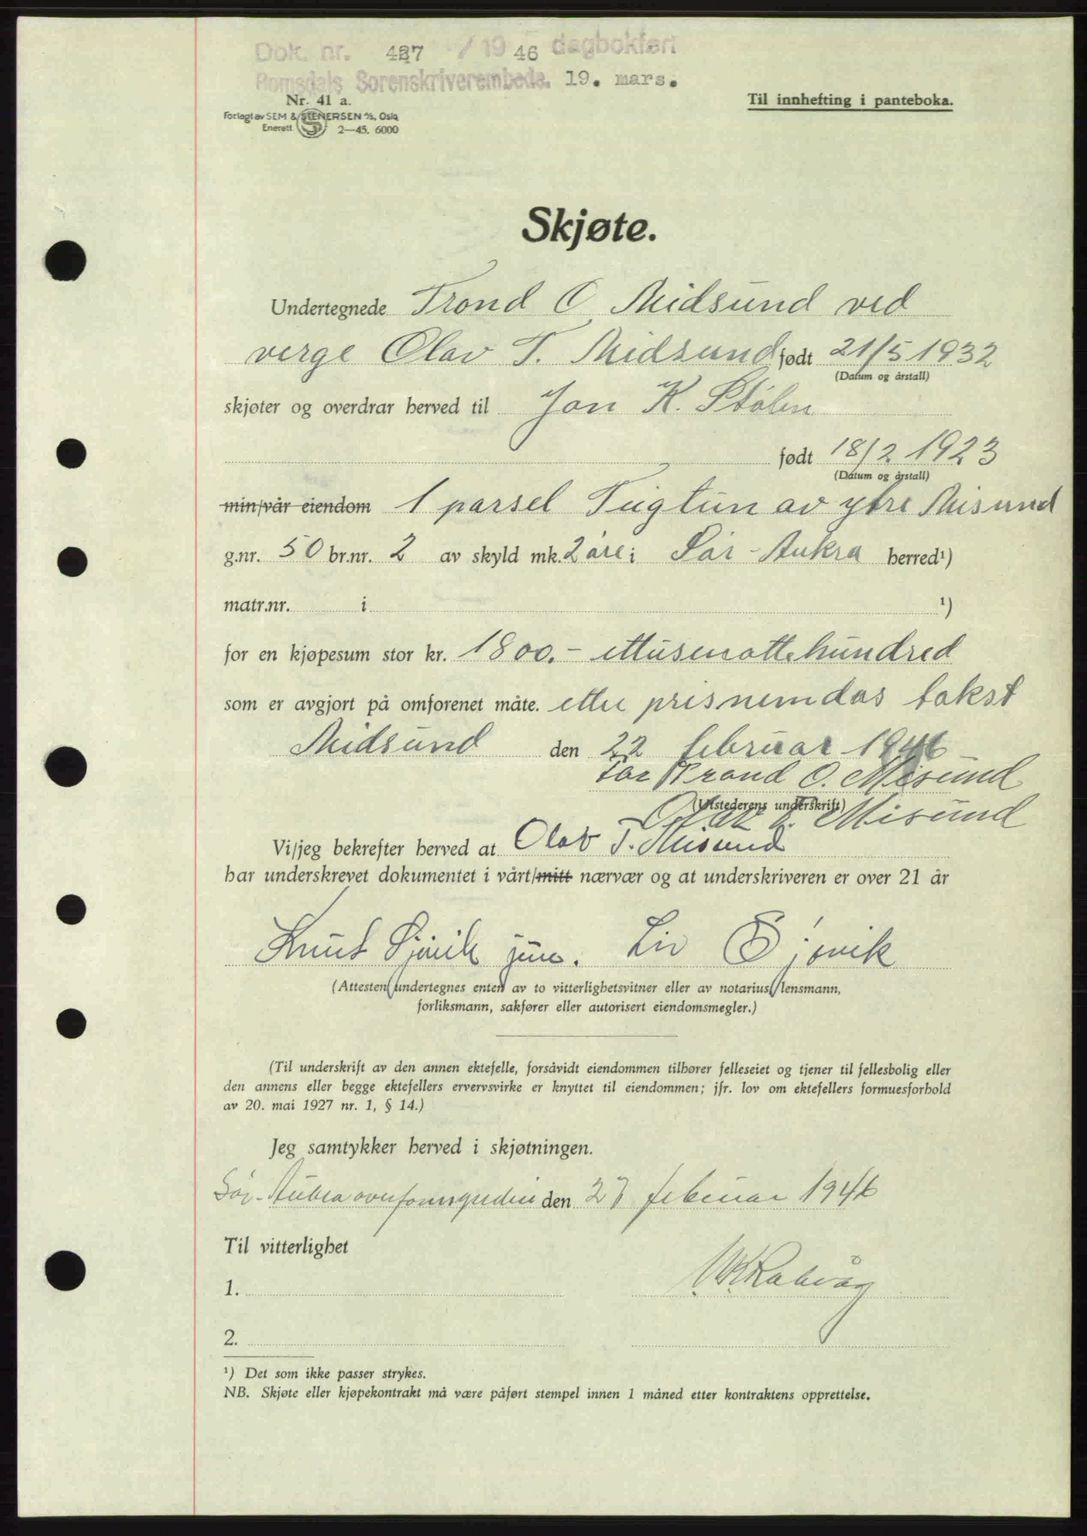 Dok. nr. 427 / 19 46 dagbokført
Romsdals Sorenskriverembede. 19. mars.
Nr. 41 a.
Forlagt av SEM & STENERSEN A/S, Oslo
Enerett 2—45. 6000
Til innhefting i panteboka.
Skjøte.
Undertegnede Trond O. Midsund ved
verge Olav T. Midsund født 21/5 1932
(Datum og årstall)
skjøter og overdrar herved til Jon K. Stølen
født 18/2 1923
(Datum og årstall)
min/vår eiendom 1 parsel Teigtun av ytre Misund
g.nr. 50 br.nr. 2 av skyld mk. 2 øre i Sør-Aukra herred¹)
matr.nr. i ¹)
for en kjøpesum stor kr. 1800.- ettusenottehundred
som er avgjort på omforenet måte. etter prisnemdas takst
Midsund den 22 februar 1946
For Trond O. Misund
(Utstederens underskrift)
Olav T. Misund
Vi/jeg bekrefter herved at Olav T. Misund
har underskrevet dokumentet i vårt/mitt nærvær og at underskriveren er over 21 år
Knut Sjövik jun. Liv Sjövik
(Attesten undertegnes enten av to vitterlighetsvitner eller av notarius, lensmann,
forliksmann, sakfører eller autorisert eiendomsmegler.)
(Til underskrift av den annen ektefelle, forsåvidt eiendommen tilhører felleseiet og tjener til fellesbolig eller
den annens eller begge ektefellers ervervsvirke er knyttet til eiendommen; jfr. lov om ektefellers formuesforhold
av 20. mai 1927 nr. 1, § 14.)
Jeg samtykker herved i skjøtningen.
Sør-Aukra overformynderi den 27 februar 1946
Til vitterlighet
1.
2.
¹) Det som ikke passer strykes.
NB. Skjøte eller kjøpekontrakt må være påført stempel innen 1 måned etter kontraktens opprettelse.